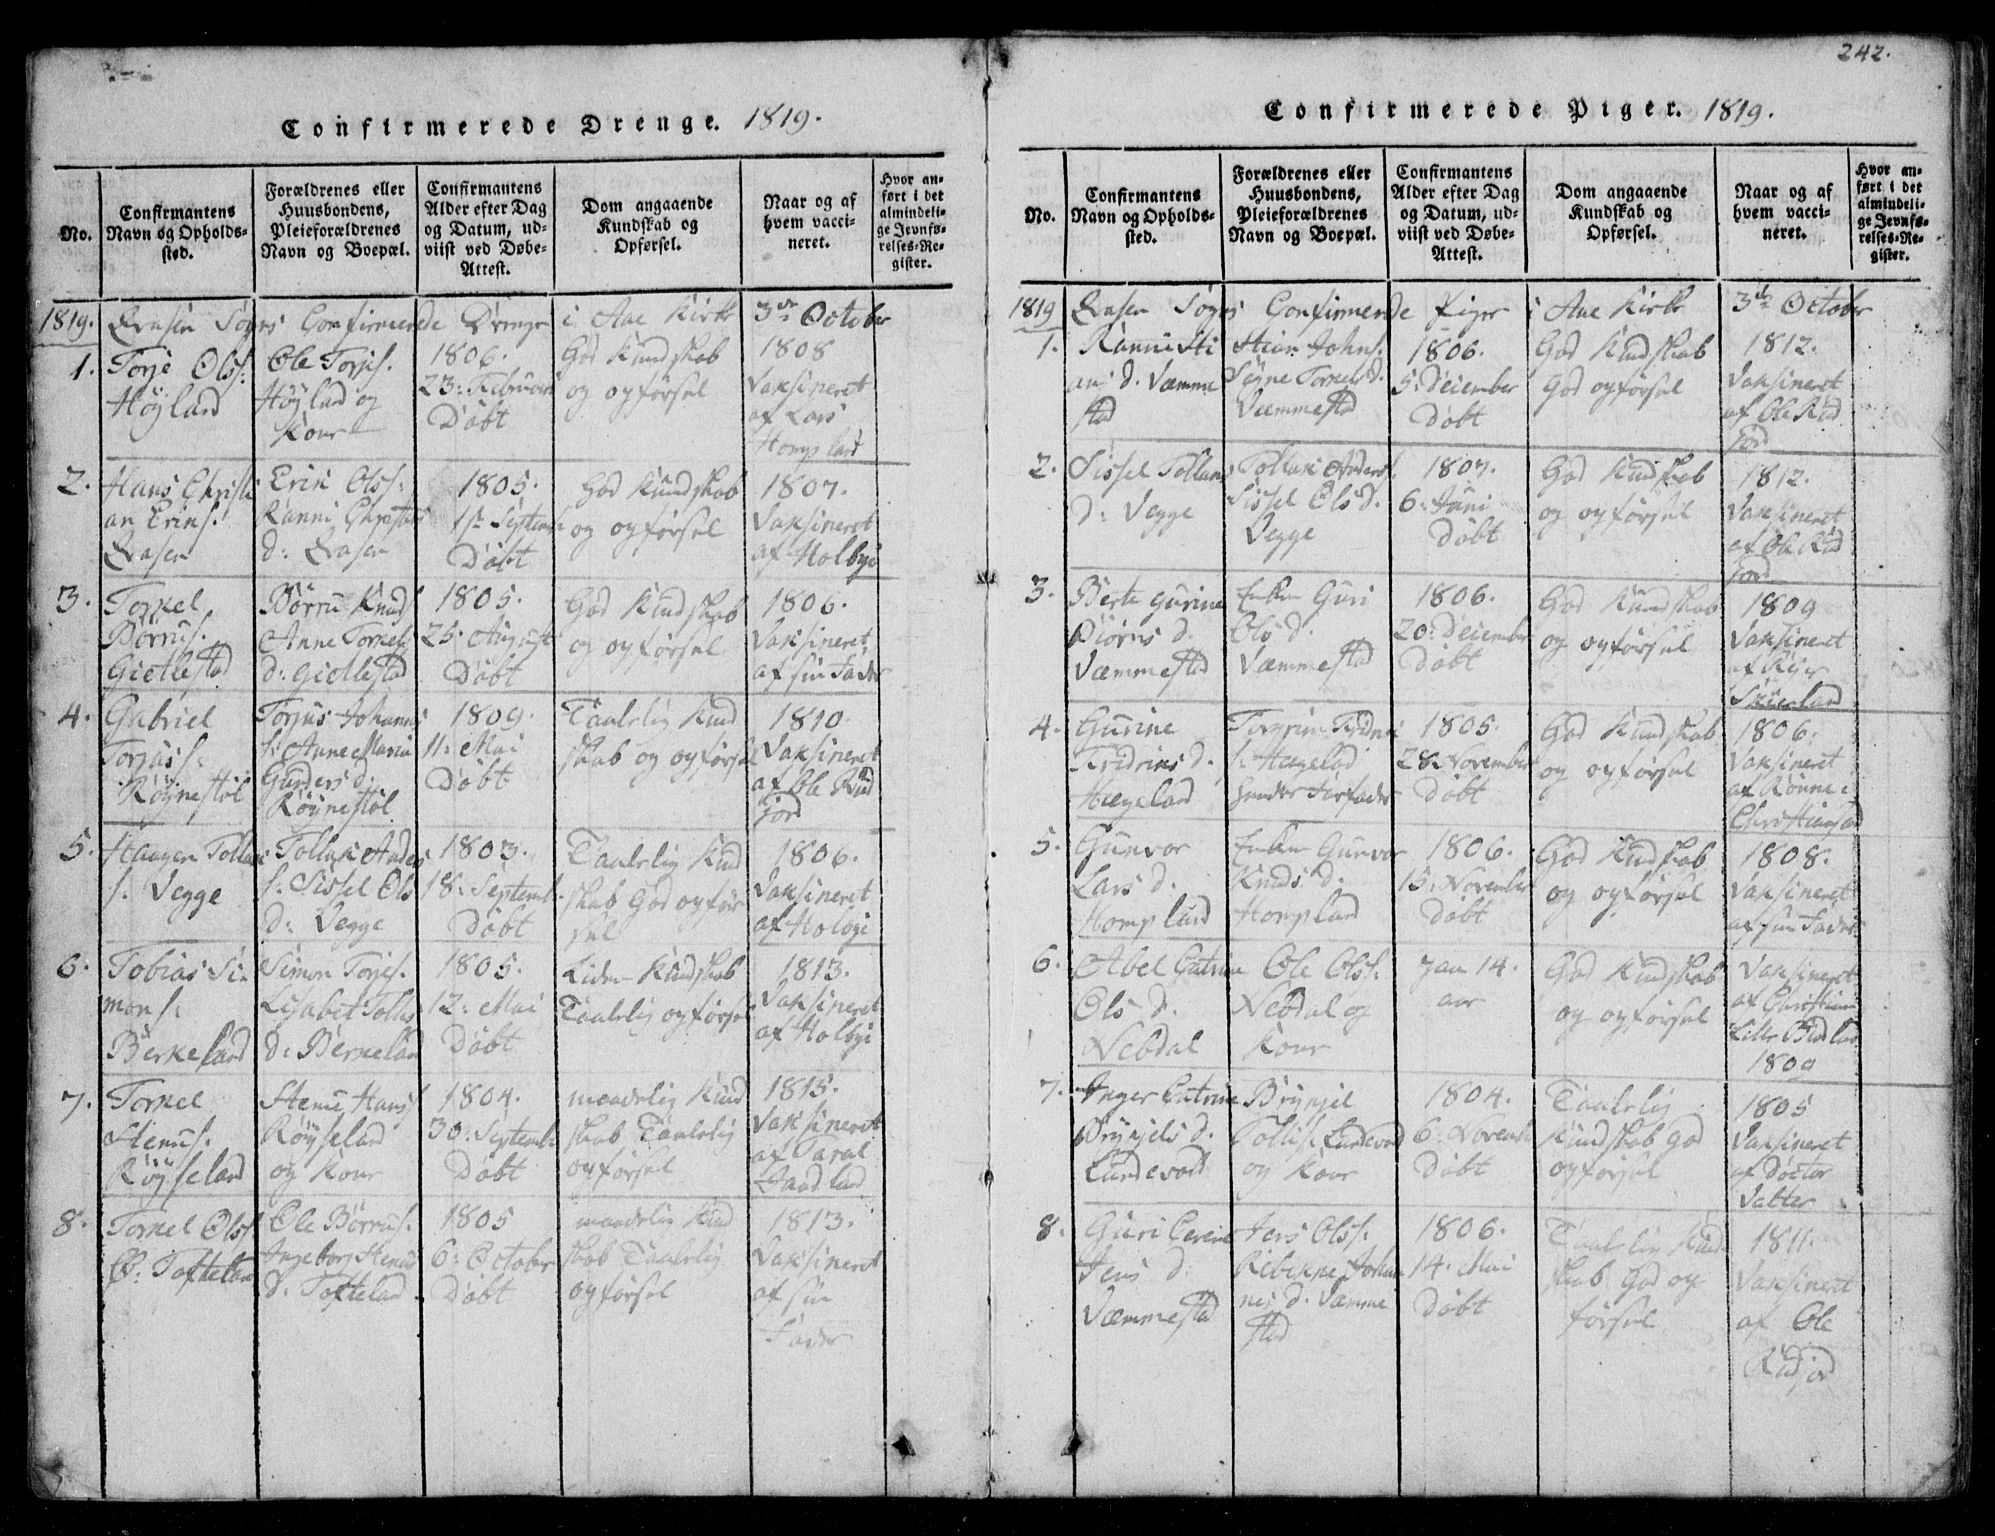 242.
Confirmerede Drenge. 1819.
No.
Confirmantens
Navn og Opholds-
sted.
Forældrenes eller
Huusbondens,
Pleieforældrenes
Navn og Boepæl.
Confirmantens
Alder efter Dag
og Datum, ud-
viist ved Døbe-
Attest.
Dom angaaende
Kundskab og
Opførsel.
Naar og af
hvem vacci-
neret.
Hvor an-
ført i det
almindeli-
ge Jevnfø-
relses-Re-
gister.
1819. Sogns Confirmerede Drenge i Aae Kirke 3de October
1.
Torje Olss:
Höyland
Ole Torjes.
Höyland og
Kone
1806.
23: Februari
Döbt
God Kundskab
og opförsel
1808
Vaksineret
af Lars
Hompland
2.
Hans Christi
an Erins.
Erin Olss:
Ranni Christens
d:
1805.
1st September
Döbt
God Kundskab
og opförsel
1807.
Vaksineret
af Holbye
3.
Torkel
Börrus.
Gietlestad
Börru Knuds
Anne Tornels
d: Gietlestad
1805.
25. August
Döbt
God Kundskab
og opförsel
1806.
Vaksineret
af sin Fader
4.
Gabriel
Torjuss:
Röynestöl
Torjus Johanns
s: Anne Maria
Gunders d.
Röynestöl
1809.
11: Mai
Döbt
Taalelig Kund
skab og opförsel
1810.
Vaksineret
af Ole Rød
jord
5.
Haagen Tollans
s. Vegge
Tollak Anders
s: Sissel Ols
d: Vegge
1803.
18: Septemb.
Döbt
Taalelig Kund
skab God opför
sel
1806.
Vaksineret
af Holbye
6.
Tobias Si
mons:
Berkeland
Simon Torjes.
Lisabet Tollis
d: Berkeland
1805.
12: Mai
Döbt
Liden Kundskab
Taalelig opförsel
1813.
Vaksineret
af Holbye
7.
Torkel
Stenus.
Röyseland
Stenu Hans
Röyseland
og Kone
1804.
30: September
Döbt
maadelig Kund
skab Taalelig
opförsel
1815.
Vaksineret
af Taral
Haadland
8.
Torkel Olss
Ø: Tofteland
Ole Börrus.
Ingeborg Stenus
d. Tofteland
1805
6: October
Döbt
maadelig Kund
skab Taalelig
opförsel
1813.
Vaksineret
af sin
Fader
Confirmerede Piger. 1819.
No.
Confirmantens
Navn og Opholds-
sted.
Forældrenes eller
Huusbondens,
Pleieforældrenes
Navn og Boepæl.
Confirmantens
Alder efter Dag
og Datum, ud-
viist ved Døbe-
Attest.
Dom angaaende
Kundskab og
Opførsel.
Naar og af
hvem vacci-
neret.
Hvor an-
ført i det
almindeli-
ge Jevnfø-
relses-Re-
gister.
1819 Sogns Confirmerede Piger i Aae Kirke 3de October
1.
Ranni Sti
ans d. Væmme
stad
Stian Johns.
Signe Tornels d.
Væmmestad
1806.
5 December
Döbt
God Kundskab
God opförsel
1812.
Vaksineret
af Ole Rød
jord
2.
Sissel Tollans
d: Vegge
Tollak Anders.
Sissel Ols d.
Vegge
1807.
6: Juni
Döbt
God Kundskab
og opförsel
1812.
Vaksineret
af Ole Rød
jord
3.
Berte Gurine
Biörns d.
Væmmestad
Enke Guri
Ols d.
Væmmestad
1806.
20: December
Döbt
God Kundskab
og opförsel
1809
Vaksineret
af Reier
Skueland
4.
Gurine
Fridrins d.
Hægeland
Torgrim Fridrins
s: Hægelad
hendes Farfader
1805.
28. November
Döbt
God Kundskab
og opförsel
1806.
Vaksineret
af Rönne i
Christiansand
5.
Gunvor
Lars d.
Hompland
Enke Gunvor
Knuds d.
Hompland
1806.
15: November
Döbt
God Kundskab
og opförsel
1808.
Vaksineret
af sin Fader
6.
Abel Catrine
Ols d.
Nebdal
Ole Olss.
Nebdal og
Kone
14.
aar
God Kundskab
og opförsel
Vaksineret
af Christian
Lille
1809
7.
Inger Catrine
Brynjels d.
Lundevold
Brynjel
Tollis. Lundevold
og Kone
1804.
6: Novemb
Döbt
Taalelig
Kundskab God
opförsel
1805
Vaksineret
af Doctor
Vetter
8.
Guri Cerene
Jens d.
Væmmestad
Jens Olss.
Rebekke Johan
nes d. Væmme
stad
1806.
14. Mai
Döbt
Taalelig Kund
skab God op
försel
1811.
Vaksineret
af Ole
Rødjord